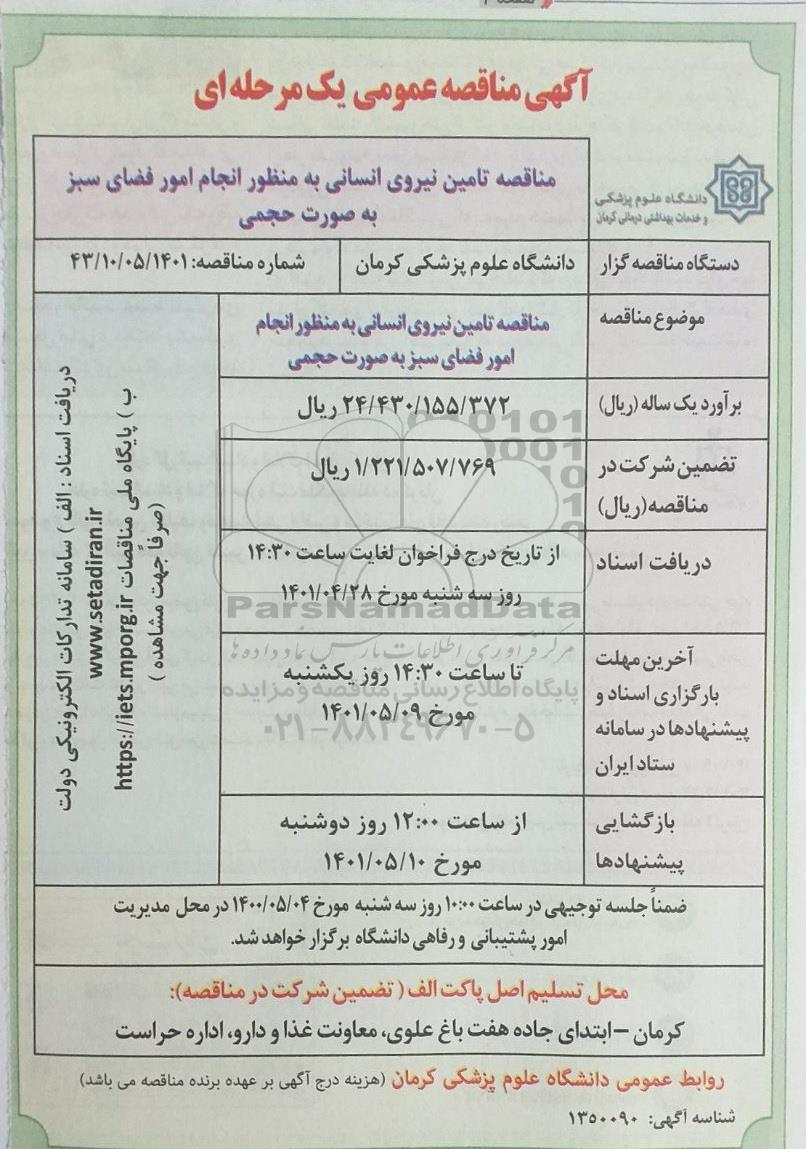 آگهی مناقصه عمومی یک مرحله ای
دانشگاه علوم پزشکی
و خدمات بهداشتی درمانی کرمان
مناقصه تامین نیروی انسانی به منظور انجام امور فضای سبز
به صورت حجمی
دستگاه مناقصه گزار
دانشگاه علوم پزشکی کرمان
شماره مناقصه: ۴۳/۱۰/۰۵/۱۴۰۱
موضوع مناقصه
مناقصه تامین نیروی انسانی به منظور انجام
امور فضای سبز به صورت حجمی
برآورد یک ساله (ریال)
۲۴/۴۳۰/۱۵۵/۳۷۲ ریال
تضمین شرکت در
مناقصه(ریال)
۱/۲۲۱/۵۰۷/۷۶۹ ریال
دریافت اسناد
از تاریخ درج فراخوان لغایت ساعت ۱۴:۳۰
روز سه شنبه مورخ ۱۴۰۱/۰۴/۲۸
آخرین مهلت
بارگزاری اسناد و
پیشنهادها در سامانه
ستاد ایران
تا ساعت ۱۴:۳۰ روز یکشنبه
مورخ ۱۴۰۱/۰۵/۰۹
بازگشایی
پیشنهادها
از ساعت ۱۲:۰۰ روز دوشنبه
مورخ ۱۴۰۱/۰۵/۱۰
دریافت اسناد : الف ) سامانه تدارکات الکترونیکی دولت
www.setadiran.ir
ب ) پایگاه ملی مناقصات https://iets.mporg.ir
(صرفاً جهت مشاهده )
ParsNamadData
مرکز فرآوری اطلاعات پارس نماد داده ها
پایگاه اطلاع رسانی مناقصه و مزایده
۰۲۱-۸۸۳۴۹۶۷۰-۵
ضمناً جلسه توجیهی در ساعت ۱۰:۰۰ روز سه شنبه مورخ ۱۴۰۰/۰۵/۰۴ در محل مدیریت
امور پشتیبانی و رفاهی دانشگاه برگزار خواهد شد.
محل تسلیم اصل پاکت الف ( تضمین شرکت در مناقصه):
کرمان –ابتدای جاده هفت باغ علوی، معاونت غذا و دارو، اداره حراست
روابط عمومی دانشگاه علوم پزشکی کرمان (هزینه درج آگهی بر عهده برنده مناقصه می باشد)
شناسه آگهی: ۱۳۵۰۰۹۰